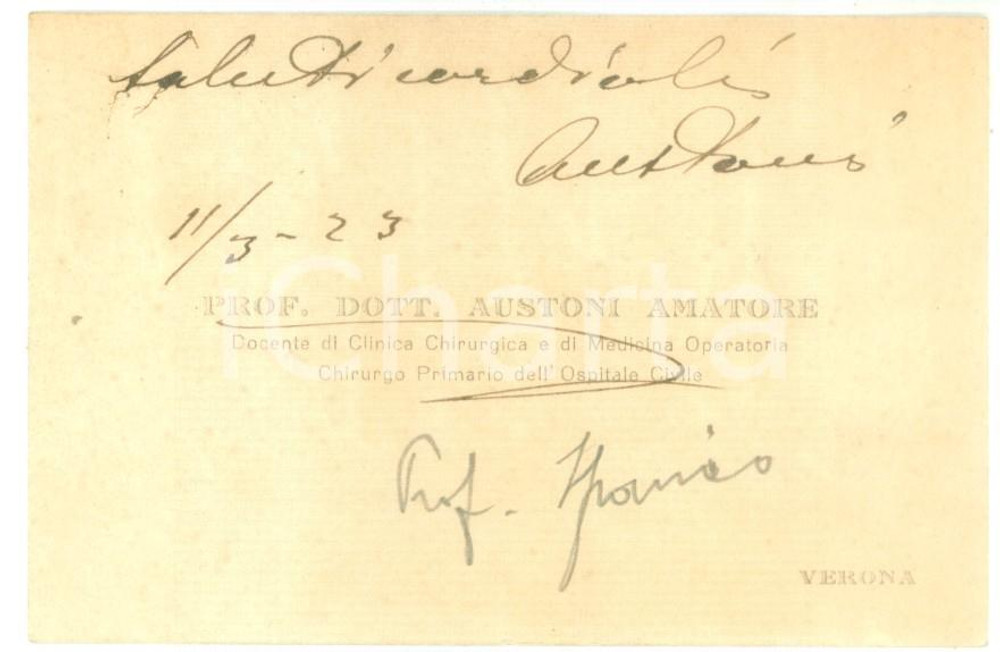 Saluti cordiali
Austoni
11/3-23
PROF. DOTT. AUSTONI AMATORE
Docente di Clinica Chirurgica e di Medicina Operatoria
Chirurgo Primario dell'Ospitale Civile
iCharta
Prof.
VERONA